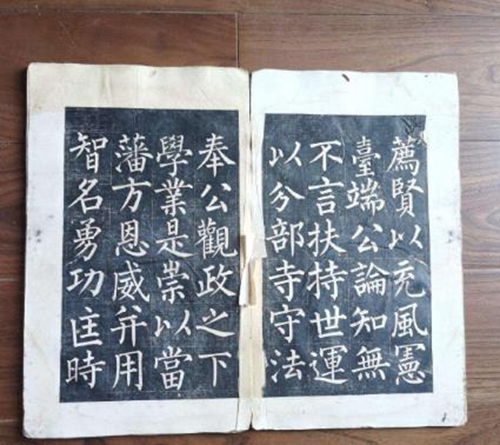 薦賢以充風憲
臺端公論知無
不言扶持世運
以分部寺守法
奉公觀政之下
學業是崇以當
藩方恩威并用
智名勇功匡時